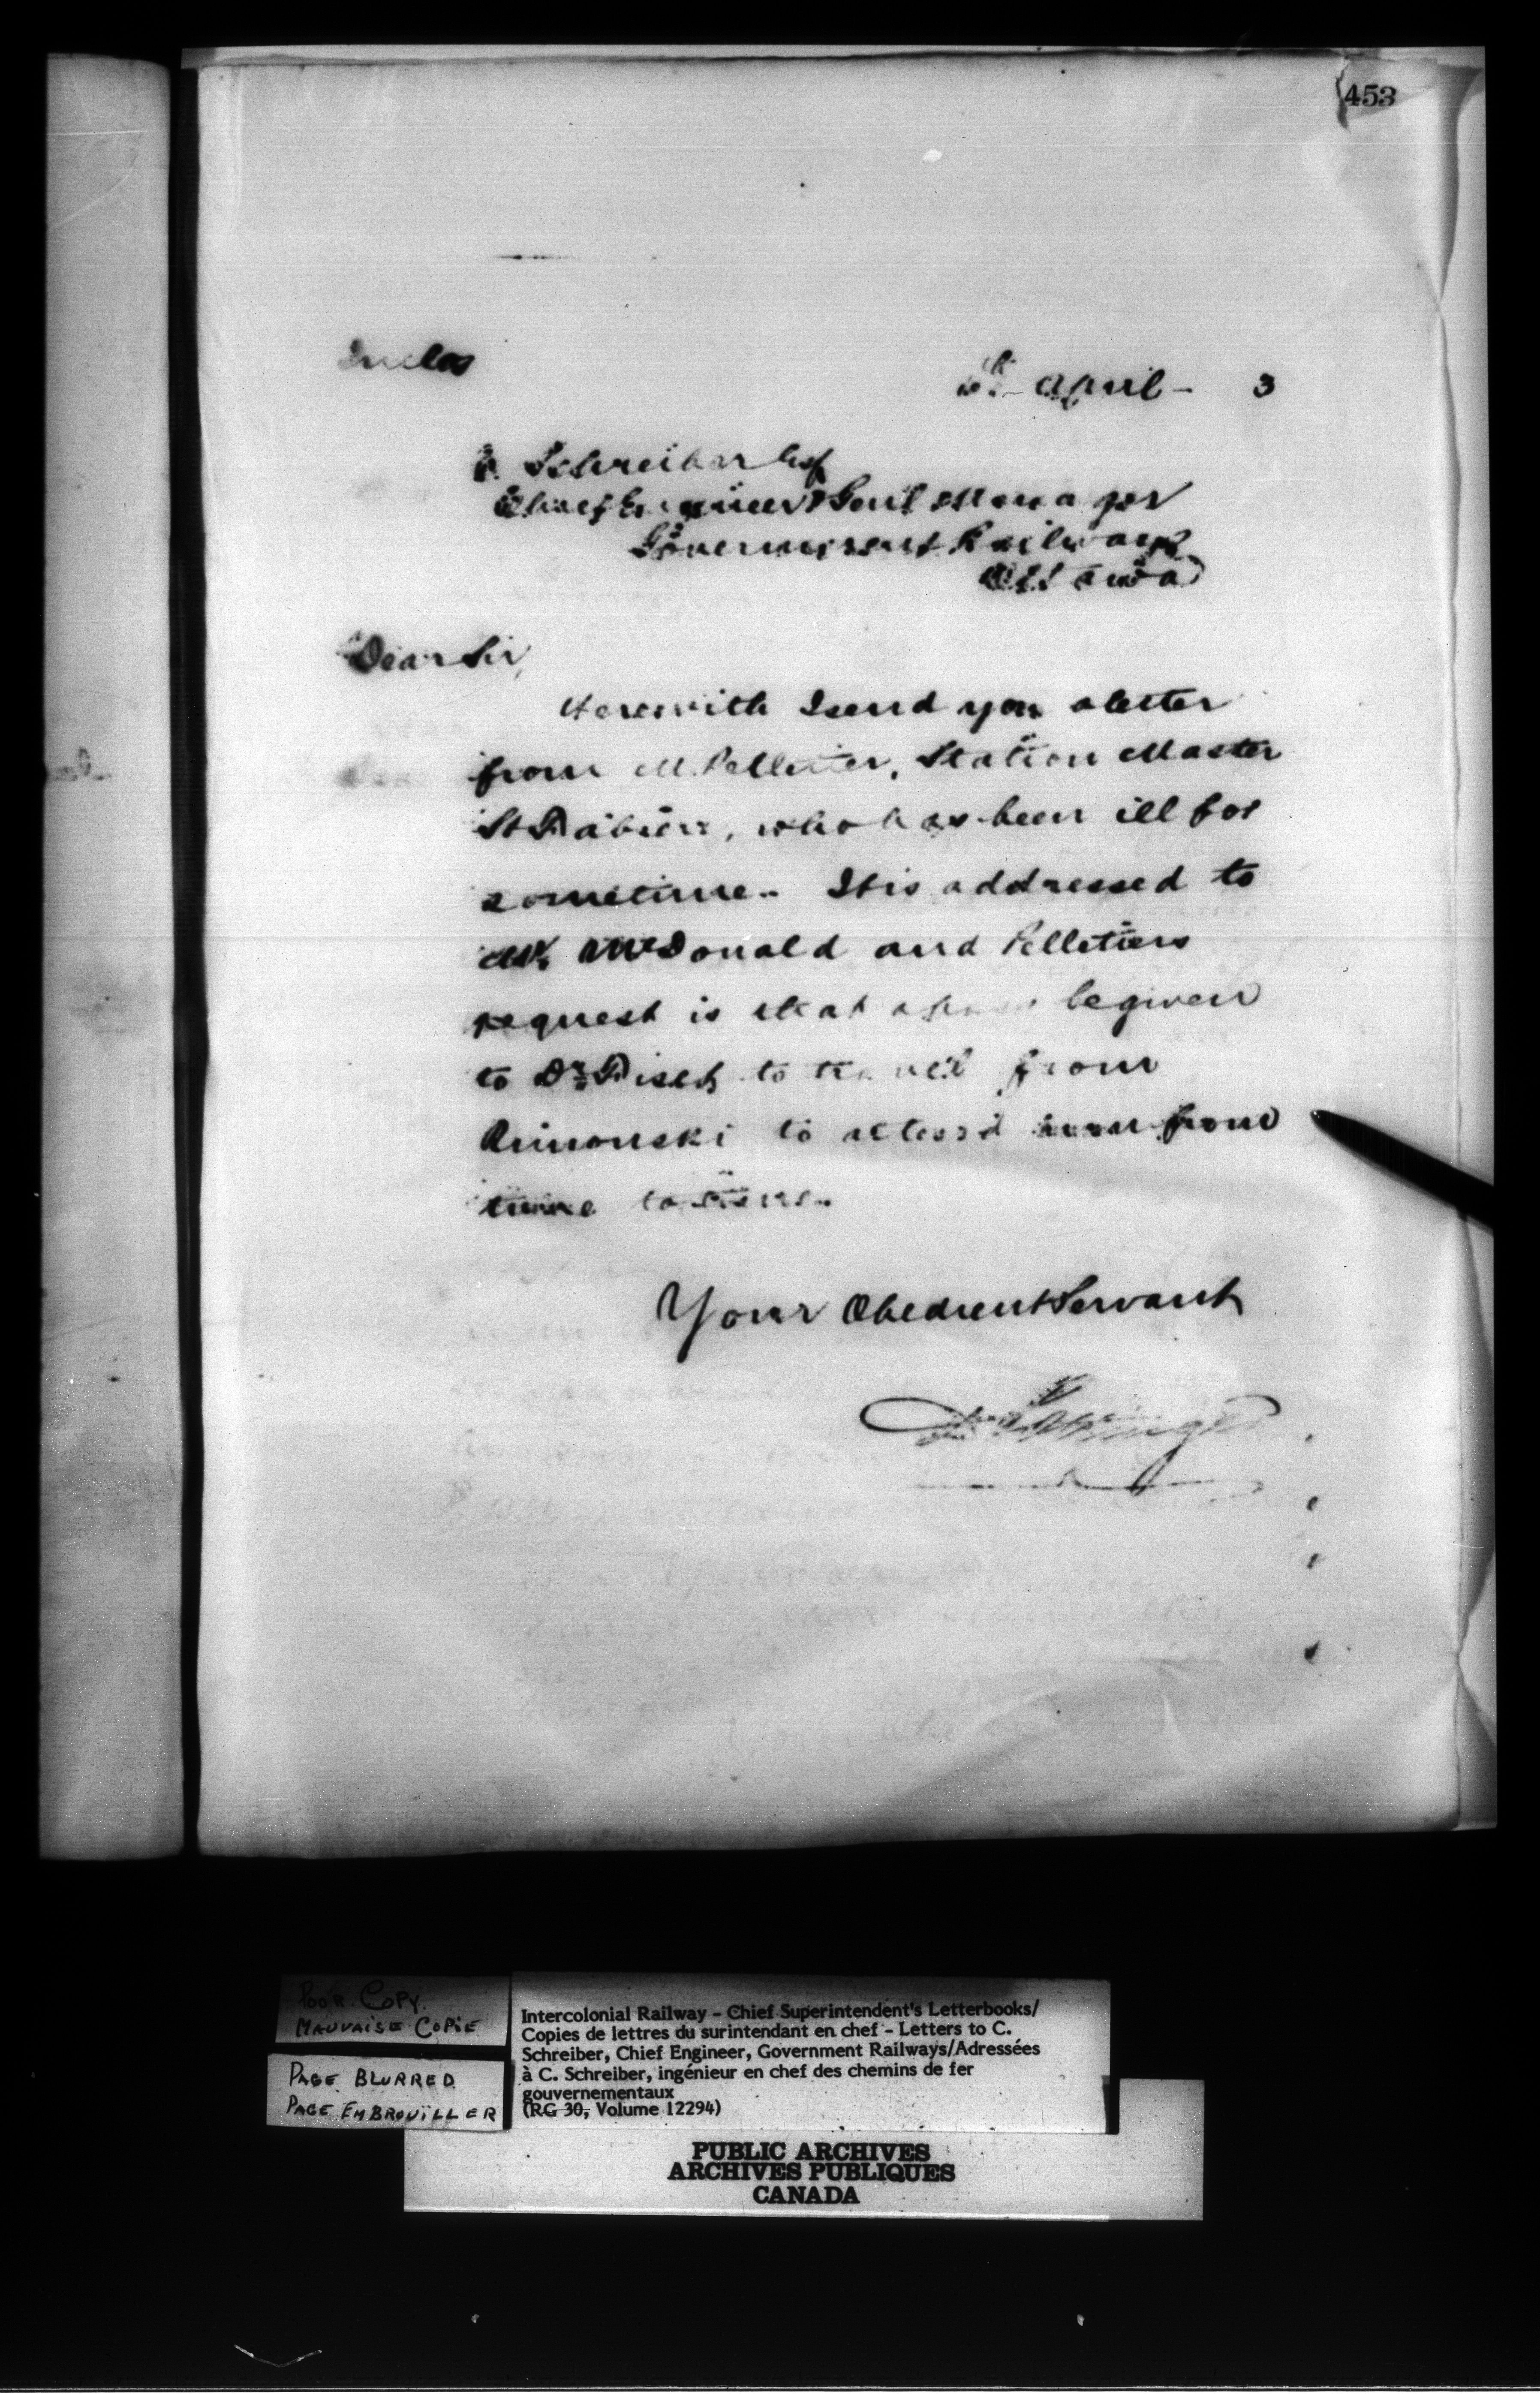 453
Inclos
6th April - 3
C. Schreiber Esq
Chief Engineer & Genl Manager
Government Railways
Ottawa
Dear Sir,
Herewith I send you a letter
from M. Pelletier, Station Master
St Fabien, who has been ill for
sometime - It is addressed to
Mr McDonald and Pelletiers
request is that a pass be given
to Dr Fiset to travel from
Rimouski to attend him from
time to time -
Your Obedient Servant
D. Pottinger
POOR COPY.
MAUVAISE COPIE
PAGE BLURRED
PAGE EMBROUILLER
Intercolonial Railway - Chief Superintendent's Letterbooks/
Copies de lettres du surintendant en chef - Letters to C.
Schreiber, Chief Engineer, Government Railways/Adressées
à C. Schreiber, ingénieur en chef des chemins de fer
gouvernementaux
(RG 30, Volume 12294)
PUBLIC ARCHIVES
ARCHIVES PUBLIQUES
CANADA